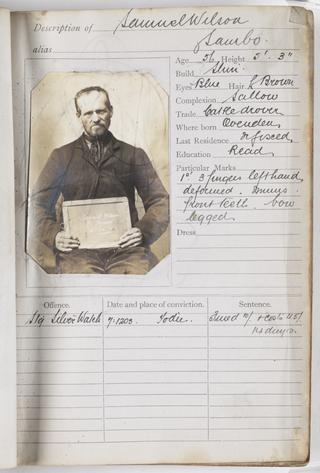 Description of Samuel Wilson
alias Sambo.
Age 56 Height 5' 3"
Build Slim.
Eyes Blue Hair L Brown
Complexion Sallow
Trade Cattle drover
Where born Ovenden
Last Residence refused
Education Read
Particular Marks
1st 3 fingers left hand
deformed.
front teeth. bow
legged
Dress
Samuel Wilson
Offence. Date and place of conviction. Sentence.
Stg Silver Watch